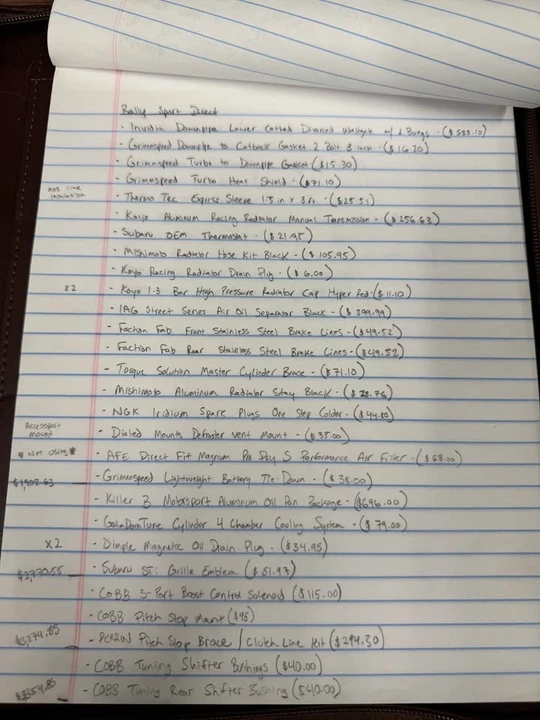 Rally Sport Direct
- Invidia Downpipe Lower Catted Divorced Wastegate w/ 2 Bungs - ($ 538.10)
- Grimmspeed Downpipe to Catback Gasket 2 Bolt 3 inch - ($ 16.20)
- Grimmspeed Turbo to Downpipe Gasket ($15.30)
- Grimmspeed Turbo Heat Shield - ($71.10)
AOS line insulation - Thermo Tec Express Sleeve 1.5 in x 3 ft. - ($25.51)
- Koyo Aluminum Racing Radiator Manual Transmission - ($ 256.63)
- Subaru OEM Thermostat - ($ 21.95)
- Mishimoto Radiator Hose Kit Black - ($ 105.95)
- Koyo Racing Radiator Drain Plug - ($ 6.00)
x2 - Koyo 1.3 Bar High Pressure Radiator Cap Hyper Red - ($11.10)
- IAG Street Series Air Oil Separator Black - ($ 399.99)
- Faction Fab Front Stainless Steel Brake Lines - ($49.52)
- Faction Fab Rear Stainless Steel Brake Lines - ($49.52)
- Torque Solution Master Cylinder Brace - ($71.10)
- Mishimoto Aluminum Radiator Stay Black - ($ 28.76)
- NGK Iridium Spark Plugs One Step Colder - ($44.80)
Accessport mount - Dialed Mounts Defroster Vent Mount - ($35.00)
* Not Using * - AFE Direct Fit Magnum Pro Dry S Performance Air Filter - ($68.00)
- Grimmspeed Lightweight Battery Tie Down - ($ 38.00)
$1,908.63
- Killer B Motorsport Aluminum Oil Pan Package - ($696.00)
- GotaDomTune Cylinder 4 Chamber Cooling System - ($ 79.00)
x2 - Dimple Magnetic Oil Drain Plug - ($34.95)
- Subaru STi Grille Emblem ($ 61.97)
- COBB 3-Port Boost Control Solenoid ($ 115.00)
- COBB Pitch Stop Mount ($95)
$3,274.85 - PERRIN Pitch Stop Brace / Clutch Line Kit ($294.30)
- COBB Tuning Shifter Bushings ($40.00)
- COBB Tuning Rear Shifter Bushing ($40.00)